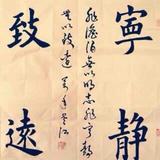 寧靜
非澹泊無以明志非寧靜
無以致遠
致遠